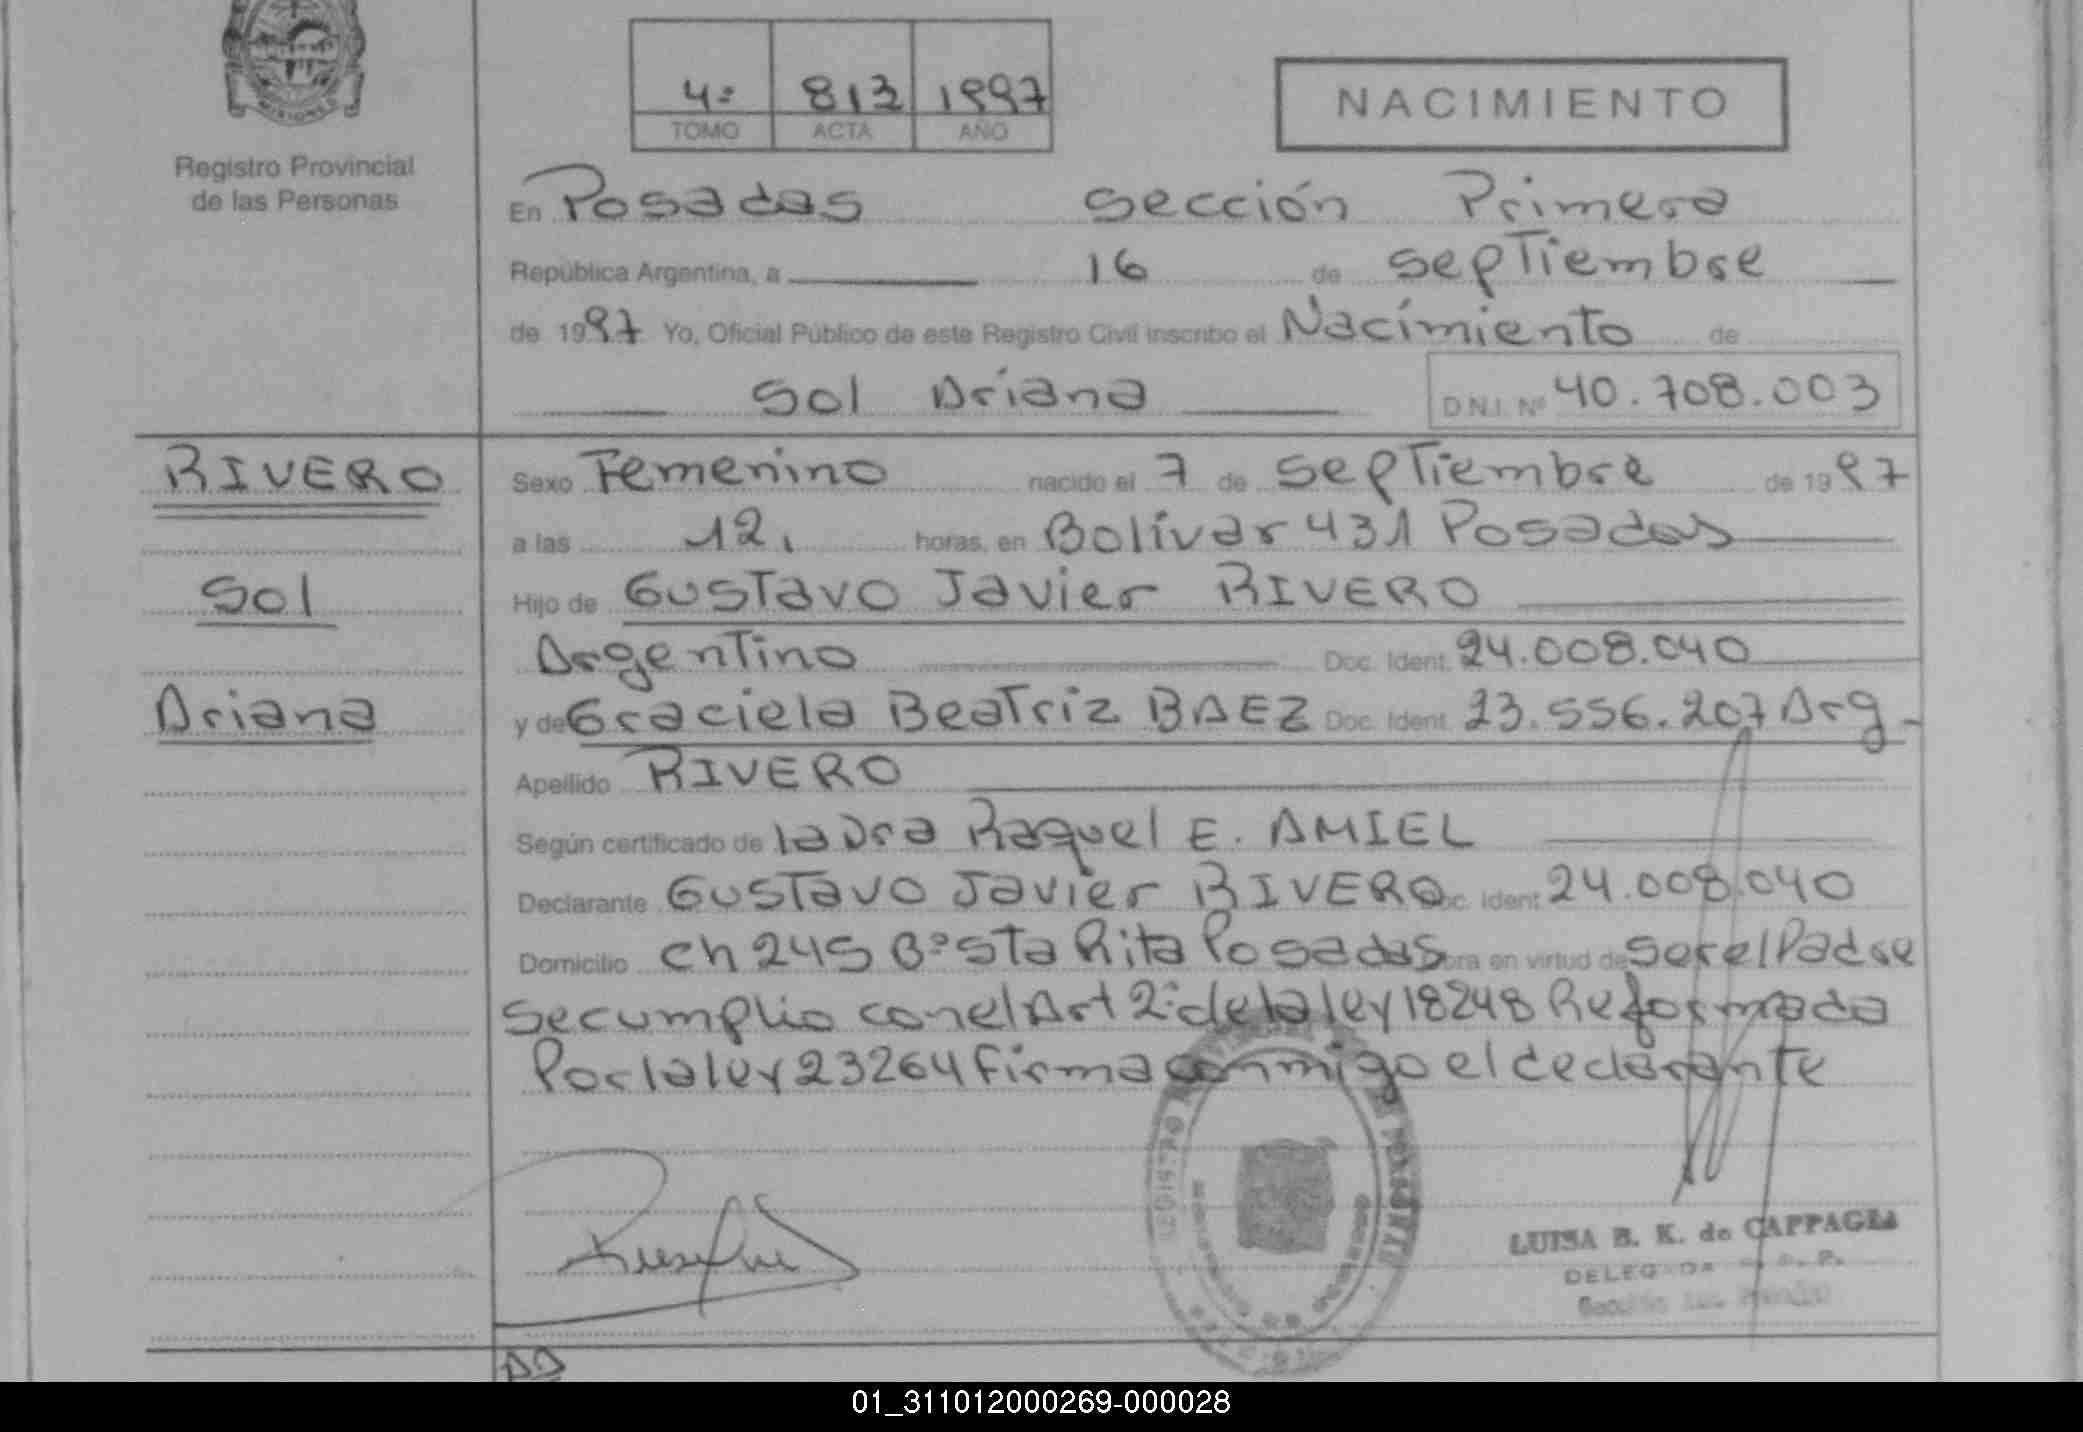 4º 813 1997
TOMO ACTA AÑO
NACIMIENTO
MISIONES
Registro Provincial
de las Personas
En Posadas sección Primera
República Argentina, a 16 de septiembre
de 1997 Yo, Oficial Público de este Registro Civil inscribo el Nacimiento de
Sol Ariana D.N.I. Nº 40.708.003
RIVERO
Sol
Ariana
Sexo Femenino nacido el 7 de septiembre de 1997
a las 12, horas, en Bolívar 431 Posadas
Hijo de Gustavo Javier RIVERO
Argentino Doc. Ident. 24.008.040
y de Graciela Beatriz BAEZ Doc. Ident. 23.556.207 Arg.
Apellido RIVERO
Según certificado de la Dra Raquel E. AMIEL
Declarante Gustavo Javier RIVERO Doc. Ident 24.008.040
Domicilio ch 245 Bº Sta Rita Posadas obra en virtud de ser el Padre
se cumplio con el Art 2º de la ley 18248 Reformada
Por la ley 23264 firma conmigo el declarante
LUISA B. K. de CAPPAGLI
DELEGADA R. P. P.
01_311012000269-000028